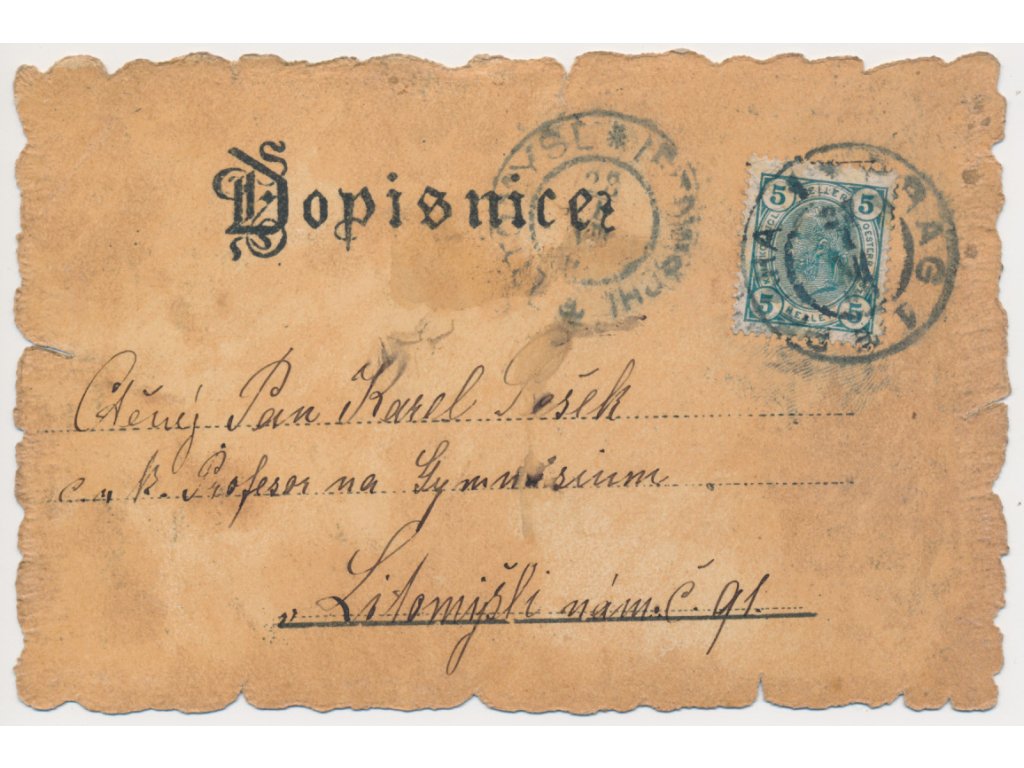 Dopisnice.
5 HELLER 5
5 HELLER 5
PRAG 1
Ctěný Pan Karel Pešek
c. a k. Profesor na Gymnasium
v Litomyšli nám. č. 91.